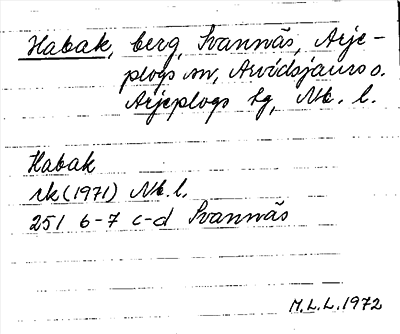 Habak, berg, Svannäs, Arje-
plogs sn, Arvidsjaurs o.
Arjeplogs tg, Nb. l.
Habak
rk (1971) Nb. l.
25I 6-7 c-d Svannäs
M.L.L. 1972